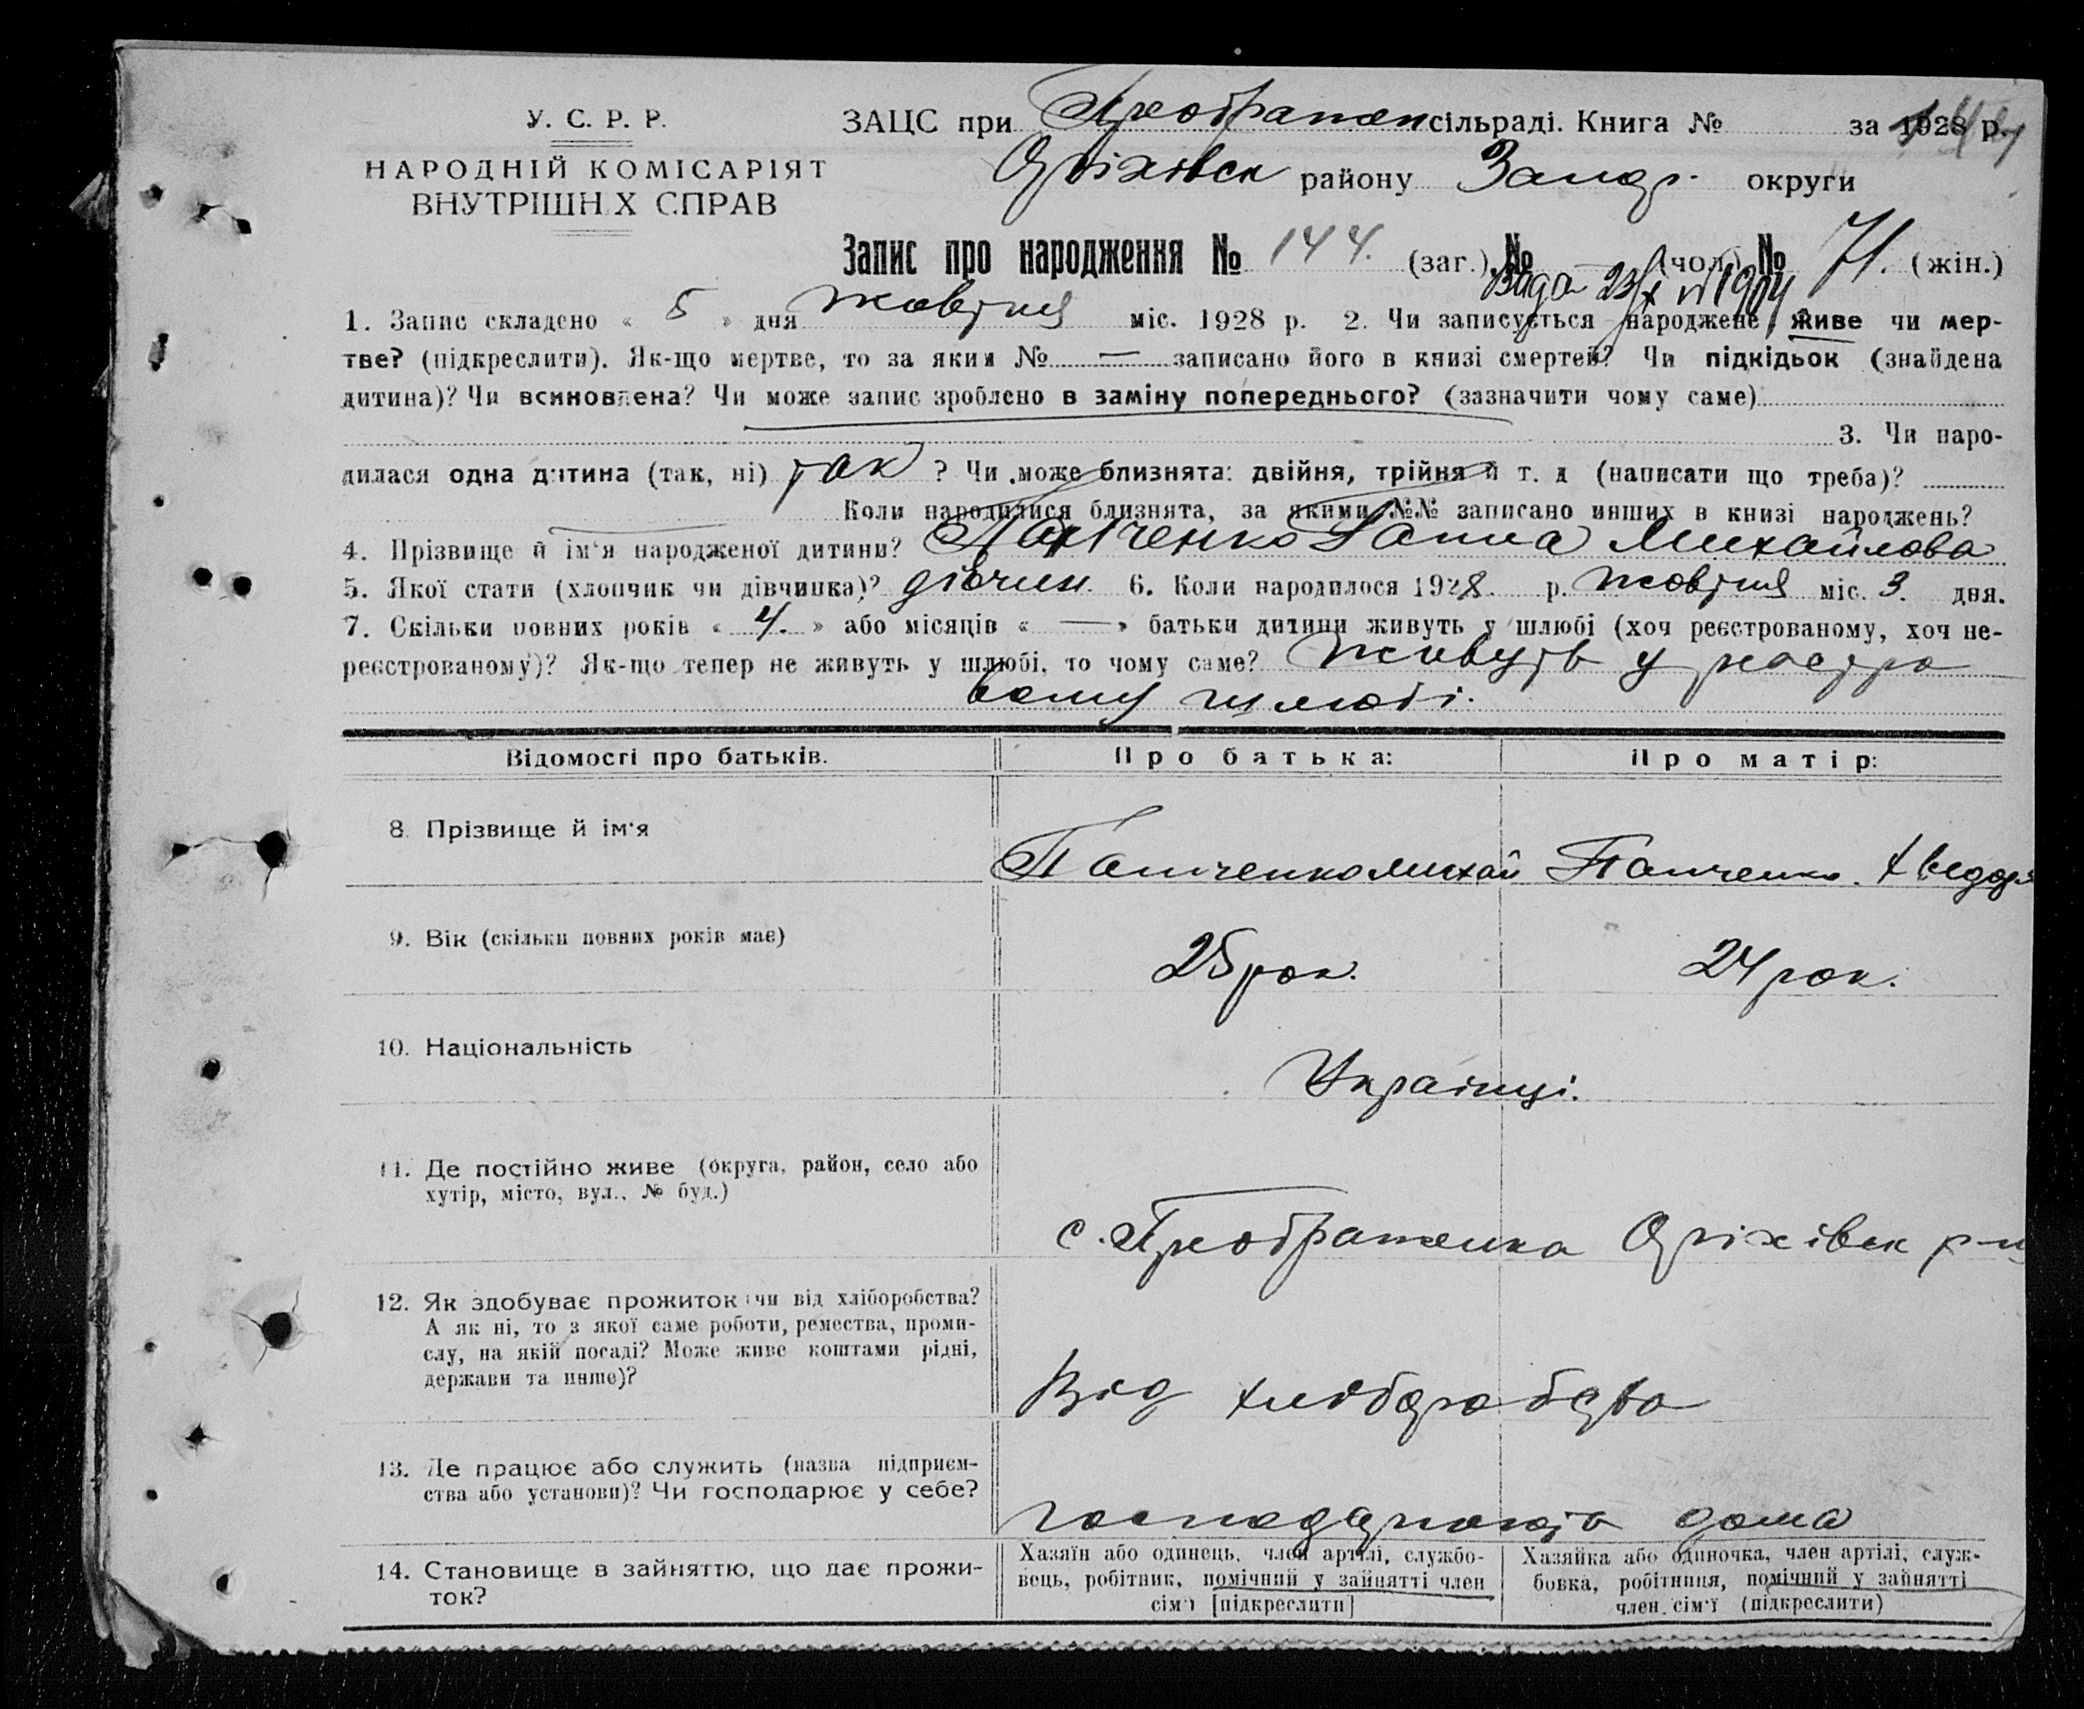 У. С. Р. Р.
НАРОДНІЙ КОМІСАРІЯТ
ВНУТРІШН Х СПРАВ
ЗАЦС при Преображен сільраді. Книга № за 1928 р.
Оріхівск району Запор. округи
Запис про народження № 144. (заг.), № (чол.) № 71. (жін.)
1. Запис складено « 5 » дня жовтня міс. 1928 р. 2. Чи записується народжене живе чи мер-
тве? (підкреслити). Як-що мертве, то за яким № — записано його в книзі смертей? Чи підкідьок (знайдена
дитина)? Чи всиновлена? Чи може запис зроблено в заміну попереднього? (зазначити чому саме)
3. Чи наро-
дилася одна дитина (так, ні) так ? Чи може близнята: двійня, трійня й т. д (написати що треба)?
Коли народилися близнята, за якими №№ записано инших в книзі народжень?
4. Прізвище й ім'я народженої дитини? Панченко Ганна Михайлова
5. Якої стати (хлопчик чи дівчинка)? дівчин. 6. Коли народилося 1928. р. жовтня міс. 3. дня.
7. Скільки повних років « 4. » або місяців « — » батьки дитини живуть у шлюбі (хоч реєстрованому, хоч не-
реєстрованому)? Як-що тепер не живуть у шлюбі, то чому саме? живуть у реєстро
вому шлюбі.
Відомості про батьків. Про батька: Про матір:
8. Прізвище й ім'я Панченко Михай Панченко. Хведора
9. Вік (скільки повних років має) 25 рок. 24 рок.
10. Національність Українці.
11. Де постійно живе (округа, район, село або
хутір, місто, вул., № буд.)
с. Преображенка Оріхівск р-ну
12. Як здобуває прожиток чи від хліборобства?
А як ні, то з якої саме роботи, ремества, проми-
слу, на якій посаді? Може живе коштами рідні,
держави та инше)?
Від хліборобства
13. Де працює або служить (назва підприєм-
ства або установи)? Чи господарює у себе?
господарюють дома
14. Становище в зайняттю, що дає прожи-
ток?
Хазяїн або одинець, член артілі, службо-
вець, робітник, помічний у зайнятті член
сім'ї [підкреслити]
Хазяйка або одиночка, член артілі, служ-
бовка, робітниця, помічний у зайнятті
член сім'ї (підкреслити)